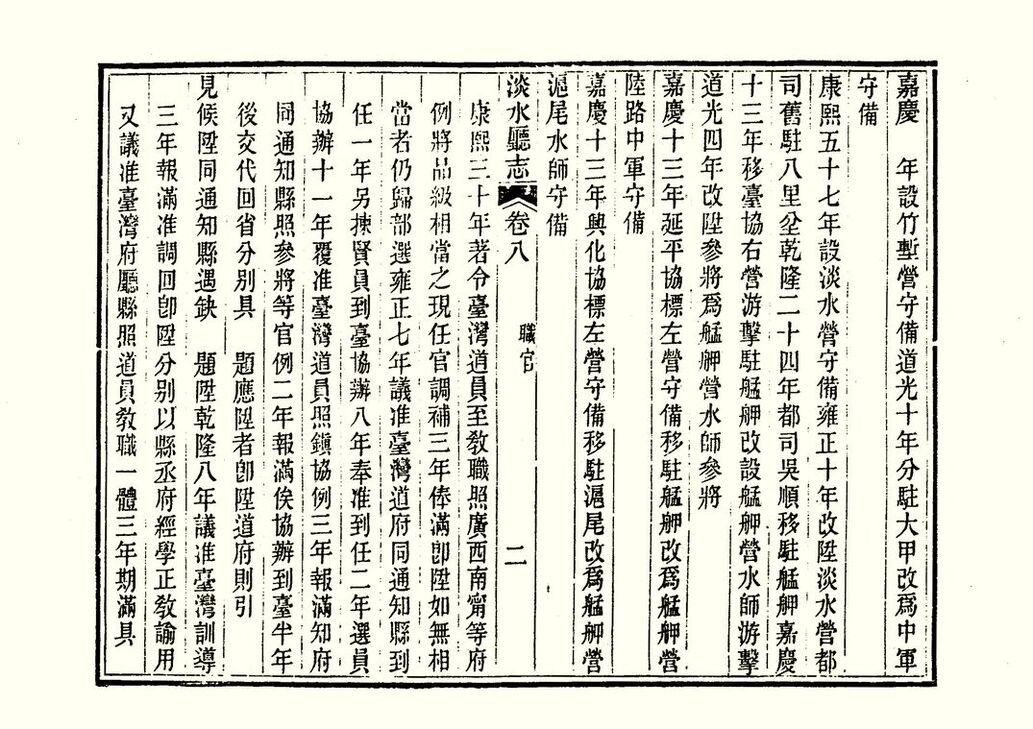 嘉慶　年設竹塹營守備道光十年分駐大甲改爲中軍
守備
康熙五十七年設淡水營守備雍正十年改陞淡水營都
司舊駐八里坌乾隆二十四年都司吳順移駐艋舺嘉慶
十三年移臺協右營游擊駐艋舺改設艋舺營水師游擊
道光四年改陞參將爲艋舺營水師參將
嘉慶十三年延平協標左營守備移駐艋舺改爲艋舺營
陸路中軍守備
嘉慶十三年興化協標左營守備移駐滬尾改爲艋舺營
滬尾水師守備
淡水廳志　卷八　職官　二
康熙三十年著令臺灣道員至教職照廣西南甯等府
例將品級相當之現任官調補三年俸滿卽陞如無相
當者仍歸部選雍正七年議准臺灣道府同通知縣到
任一年另揀賢員到臺協辦八年奉准到任二年選員
協辦十一年覆准臺灣道員照鎭協例三年報滿知府
同通知縣照參將等官例二年報滿俟協辦到臺半年
後交代回省分別具　題應陞者卽陞道府則引
見候陞同通知縣遇缺　題陞乾隆八年議准臺灣訓導
三年報滿准調回卽陞分別以縣丞府經學正教諭用
又議准臺灣府廳縣照道員教職一體三年期滿具